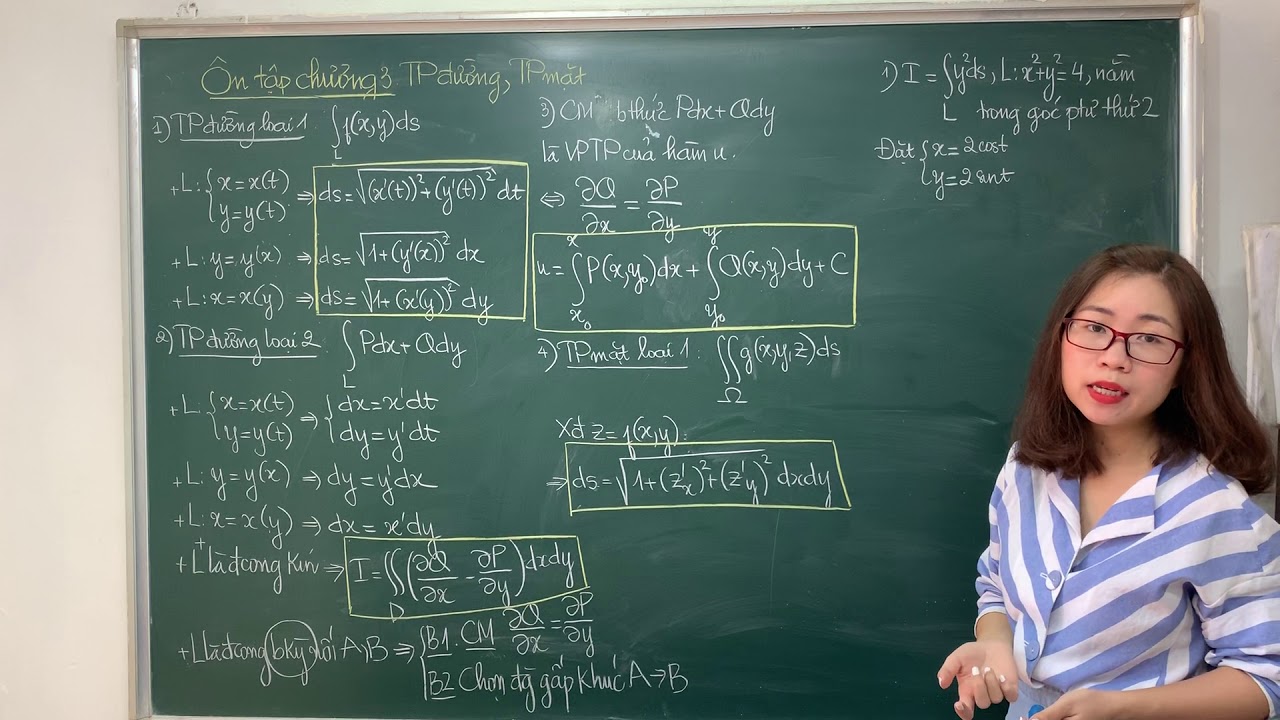 Ôn tập chương 3 TP đường, TP mặt
1) TP đường loại 1: ∫_L f(x,y)ds
+ L: { x = x(t)
y = y(t) ⇒ ds = √((x'(t))² + (y'(t))²) dt
+ L: y = y(x) ⇒ ds = √(1 + (y'(x))²) dx
+ L: x = x(y) ⇒ ds = √(1 + (x'(y))²) dy
2) TP đường loại 2: ∫_L Pdx + Qdy
+ L: { x = x(t) ⇒ { dx = x'dt
y = y(t) dy = y'dt
+ L: y = y(x) ⇒ dy = y'dx
+ L: x = x(y) ⇒ dx = x'dy
+ L⁺ là đcong kín ⇒ I = ∬_D (∂Q/∂x - ∂P/∂y) dxdy
+ L là đcong bkỳ nối A, B ⇒ { B1. CM ∂Q/∂x = ∂P/∂y
B2 Chọn đg gấp khúc A → B
3) CM bthức Pdx + Qdy
là VPTP của hàm u.
⇔ ∂Q/∂x = ∂P/∂y
u = ∫_{x₀}^{x} P(x,y₀)dx + ∫_{y₀}^{y} Q(x,y)dy + C
4) TP mặt loại 1: ∬_Ω g(x,y,z)ds
Xđ z = f(x,y).
⇒ ds = √(1 + (z'x)² + (z'y)²) dxdy
1) I = ∫_L y²ds, L: x² + y² = 4, nằm
trong góc phư thứ 2
Đặt { x = 2cost
y = 2sint